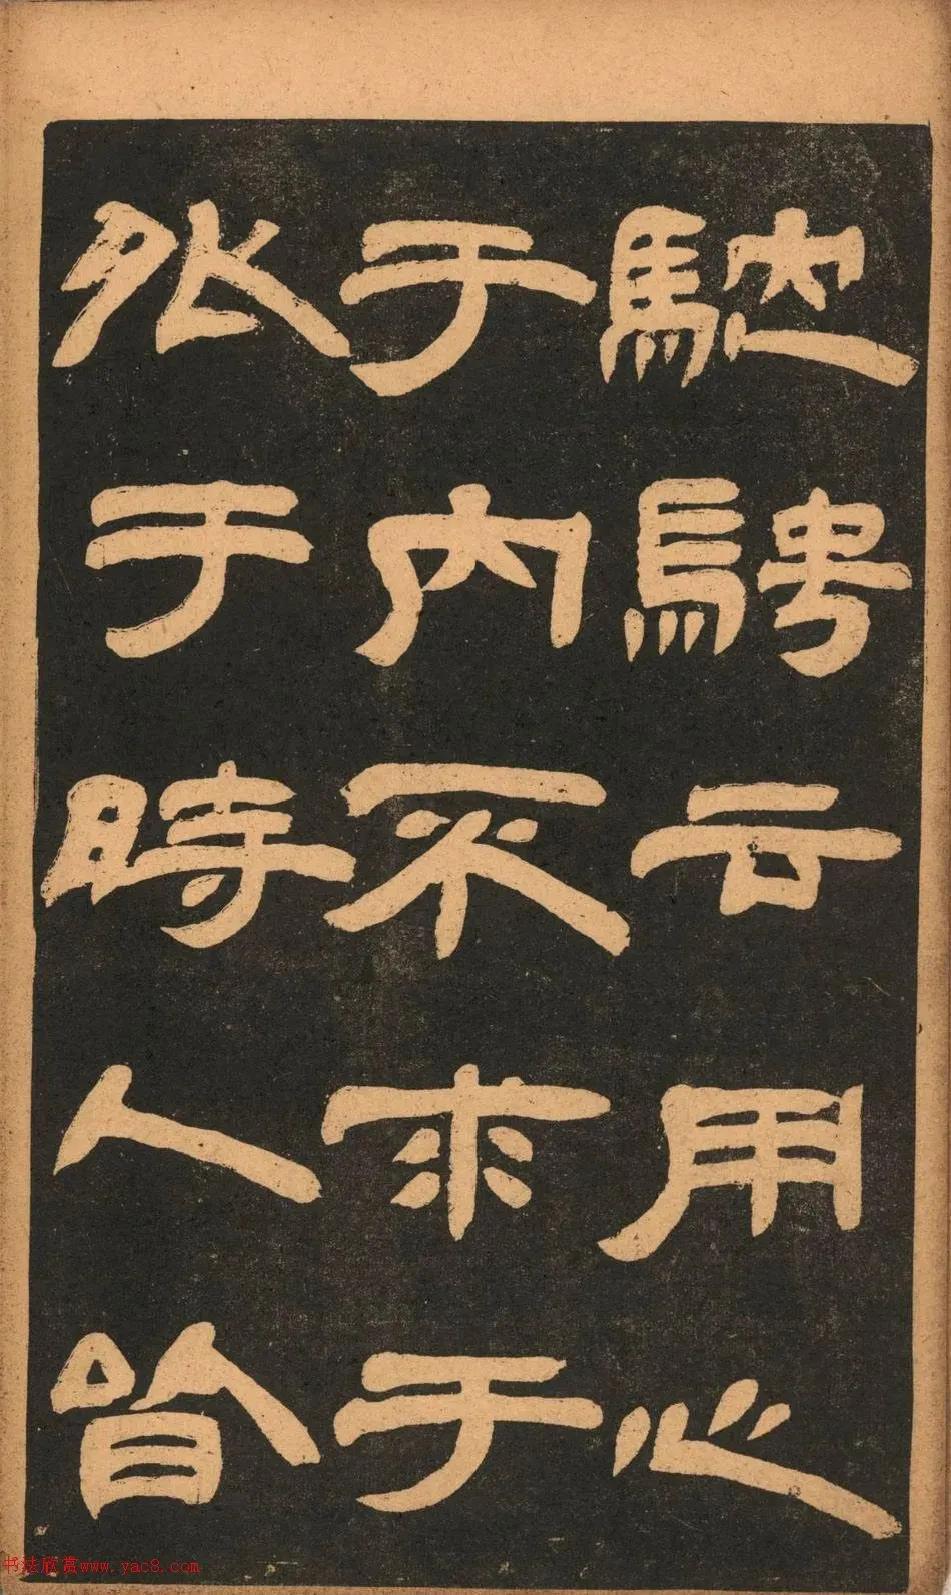 馳騁云用心
于内不求于
外于時人皆
书法欣赏www.yac8.com